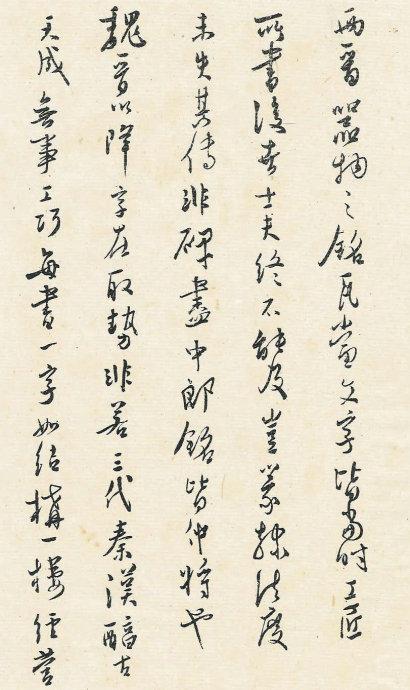 両晉器物之銘瓦當文字皆當時工匠
所書後者士夫終不能及豈篆隸法度
未失其傳非碑盡中郎銘皆仲將也
魏晉以降字在取勢非若三代秦漢醇古
天成無事工巧每書一字如結構一樓經營